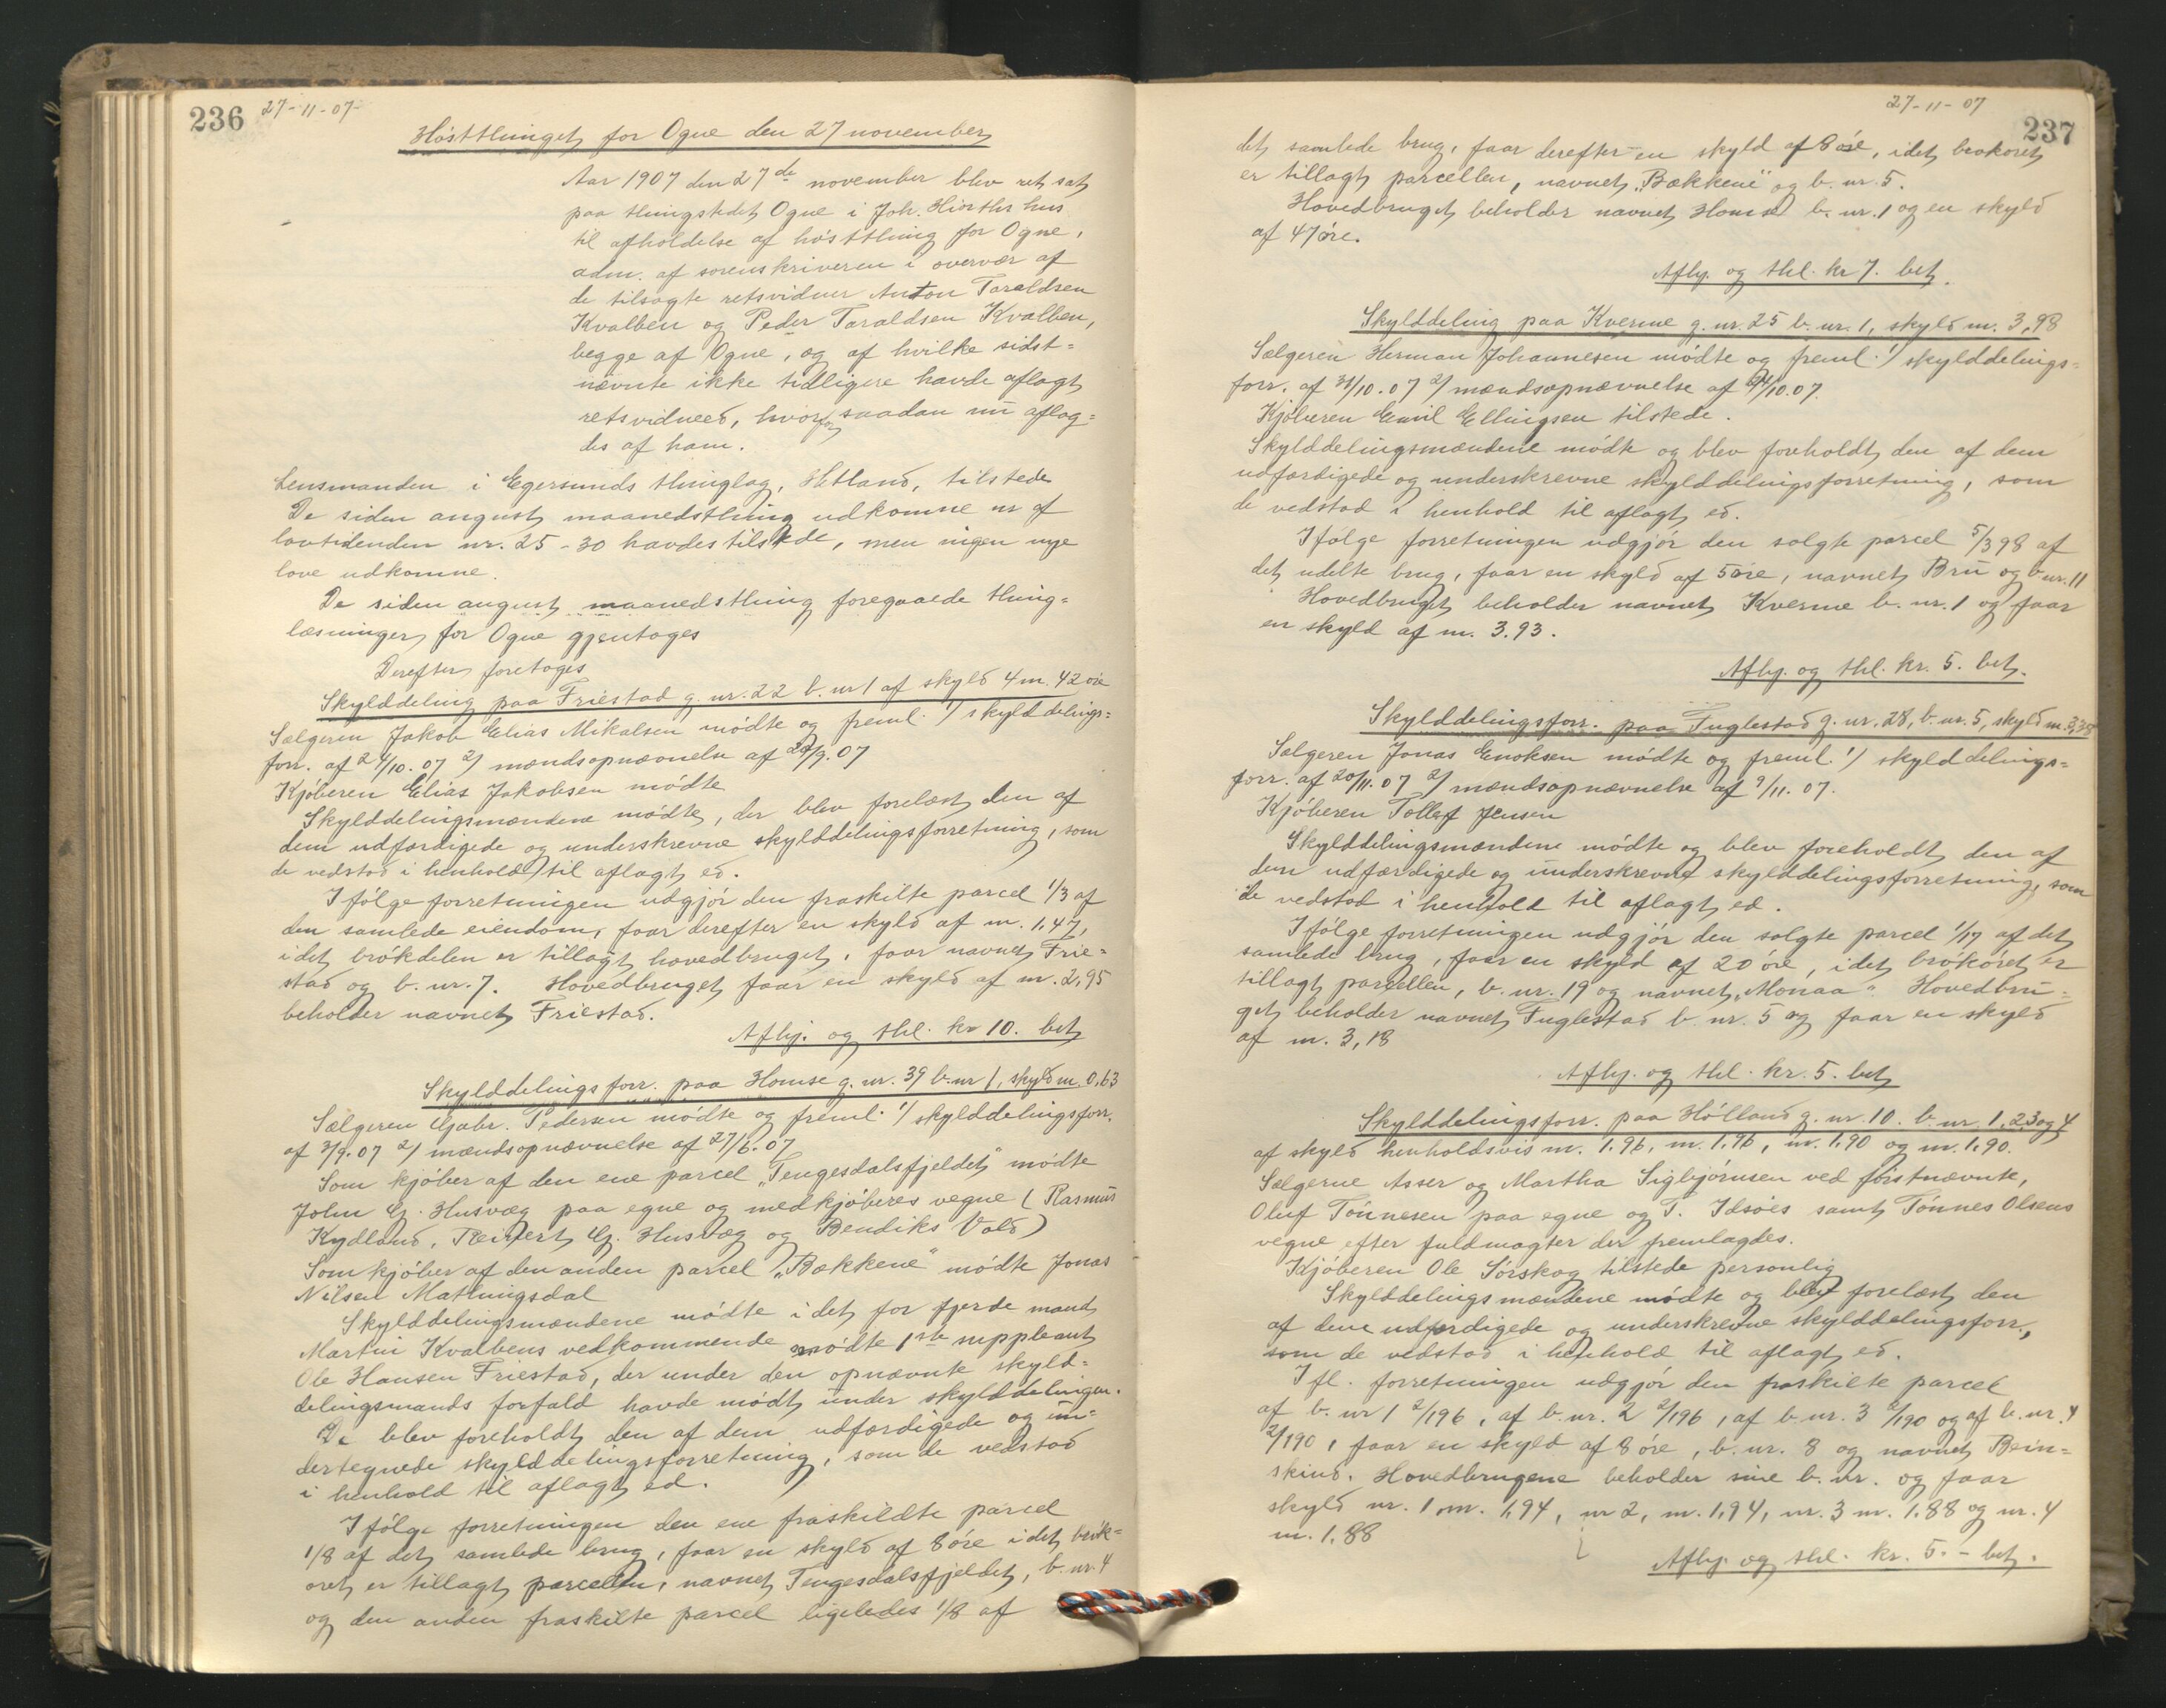 236 27-11-07-
Høstthinget for Ogne den 27 november
Aar 1907 den 27de november blev ret sat
paa thingstedet Ogne i Joh. Hiorths hus
til afholdelse af høstthing for Ogne,
adm. af sorenskriveren i overvær af
de tilsagte retsvidner Anton Taraldsen
Kvalben og Peder Taraldsen Kvalben,
begge af Ogne, og af hvilke sidst=
nævnte ikke tidligere havde aflagt
retsvidneed, hvorfor saadan nu aflag=
des af ham.
Lensmanden i Egersunds thinglag, Hetland, tilstede
De siden august maanedsthing udkomne nr af
lovtidenden nr. 25-30 havdes tilstede, men ingen nye
love udkomne.
De siden august maanedsthing foregaaede thing=
læsninger for Ogne gjentages
Derefter foretoges
Skylddeling paa Friestad g. nr. 22 b. nr 1 af skyld 4 m. 42 øre
Sælgeren Jakob Elias Mikalsen mødte og freml. 1) skylddelings=
forr. af 24/10.07 2) mændsopnævnelse af 20/9.07
Kjøberen Elias Jakobsen mødte
Skylddelingsmændene mødte, der blev forelæst den af
dem udfærdigede og underskrevne skylddelingsforretning, som
de vedstod i henhold til aflagt ed.
Ifølge forretningen udgjør den fraskilte parcel 1/3 af
den samlede eiendom, faar derefter en skyld af m. 1,47,
idet brøkdelen er tillagt hovedbruget, faar navnet Frie=
stad og b. nr. 7. Hovedbruget faar en skyld af m. 2,95
beholder navnet Friestad.
Afhj. og thl. kr 10. bet
Skylddelingsforr. paa Homse g. nr. 39 b. nr 1, skyld m. 0,63
Sælgeren Gabr. Pedersen mødte og freml. 1) skylddelingsforr.
af 3/9.07 2) mændsopnævnelse af 27/6.07
Som kjøber af den ene parcel „Tengesdalsfjeldet" mødte
John G. Husvæg paa egne og medkjøberes vegne (Rasmus
Kydland, Reinert G. Husvæg og Bendiks Vold)
Som kjøber af den anden parcel „Bækkene" mødte Jonas
Nilsen Matlungsdal
Skylddelingsmændene mødte idet for fjerde mand
Martin Kvalbens vedkommende mødte 1ste suppleant
Ole Hansen Friestad, der under den opnævnte skyld=
delingsmands forfald havde mødt under skylddelingen.
De blev foreholdt den af dem udfærdigede og un=
dertegnede skylddelingsforretning, som de vedstod
i henhold til aflagt ed.
Ifølge forretningen den ene fraskildte parcel
1/8 af det samlede brug, faar en skyld af 8 øre idet brøk=
øret er tillagt parcellen, navnet Tengesdalsfjeldet, b. nr. 4
og den anden fraskilte parcel ligeledes 1/8 af
27-11-07
237
det samlede brug, faar derefter en skyld af 8 øre, idet brøkøret
er tillagt parcellen, navnet „Bækkene" og b. nr. 5.
Hovedbruget beholder navnet Homse b. nr. 1 og en skyld
af 47 øre.
Afhj. og thl. kr 7. bet.
Skylddeling paa Kverme g. nr. 25 b. nr. 1, skyld m. 3,98
Sælgeren Herman Johannesen mødte og freml. 1) skylddelings=
forr. af 31/10.07 2) mændsopnævnelse af /10.07.
Kjøberen Emil Ellingsen tilstede.
Skylddelingsmændene mødte og blev foreholdt den af dem
udfærdigede og underskrevne skylddelingsforretning, som
de vedstod i henhold til aflagt ed.
Ifølge forretningen udgjør den solgte parcel 5/398 af
det udelte brug, faar en skyld af 5 øre, navnet Bru og b. nr. 11
Hovedbruget beholder navnet Kverme b. nr. 1 og faar
en skyld af m. 3.93.
Afhj. og thl. kr. 5. bet.
Skylddelingsforr. paa Fuglestad g. nr. 28, b. nr. 5, skyld m. 3,38
Sælgeren Jonas Enoksen mødte og freml. 1) skylddelings=
forr. af 20/11.07 2) mændsopnævnelse af 9/11.07.
Kjøberen Tollef Jensen
Skylddelingsmændene mødte og blev foreholdt den af
dem udfærdigede og underskrevne skylddelingsforretning, som
de vedstod i henhold til aflagt ed.
Ifølge forretningen udgjør den solgte parcel 1/17 af det
samlede brug, faar en skyld af 20 øre, idet brøkøret er
tillagt parcellen, b. nr. 19 og navnet „Monaa". Hovedbru=
get beholder navnet Fuglestad b. nr. 5 og faar en skyld
af m. 3,18
Afhj. og thl. kr. 5. bet
Skylddelingsforr. paa Hølland g. nr. 10. b. nr. 1, 2, 3 og 4
af skyld henholdsvis m. 1.96, m. 1.96, m. 1,90 og m. 1,90.
Sælgerne Asser og Martha Sigbjørnsen ved førstnævnte,
Oluf Tønnesen paa egne og T. Idsøes samt Tønnes Olsens
vegne efter fuldmagter der fremlagdes.
Kjøberen Ole Sørskog tilstede personlig
Skylddelingsmændene mødte og blev forelæst den
af dem udfærdigede og underskrevne skylddelingsforr.,
som de vedstod i henhold til aflagt ed.
Ifl. forretningen udgjør den fraskilte parcel
af b. nr 1 2/196, af b. nr. 2 2/196, af b. nr. 3 2/190 og af b. nr. 4
2/190, faar en skyld af 8 øre, b. nr. 8 og navnet Bein=
skind. Hovedbrugene beholder sine b. nr. og faar
skyld nr. 1 m. 1,94, nr 2, m. 1,94, nr. 3 m. 1.88 og nr. 4
m. 1.88
Afhj. og thl. kr. 5. - bet.